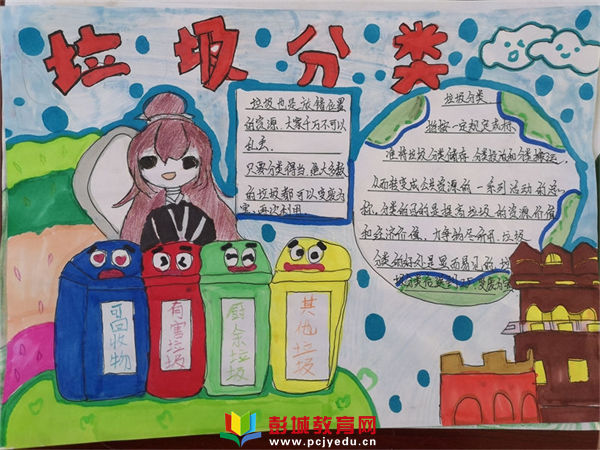 垃圾分类
垃圾也是放错位置
的资源,大家千万不可以
乱丢。
只要分类得当,绝大多数
的垃圾都可以变废为
宝,再次利用。
垃圾分类
指按一定规定或标
准将垃圾分类储存、分类投放和分类搬运,
从而转变成公共资源的一系列活动的总
称。分类的目的是提高垃圾的资源价值
和经济价值,力争物尽所用。垃圾
分类的好处是显而易见的。垃
可回收物
有害垃圾
厨余垃圾
其他垃圾
彭城教育网
www.pcjyedu.cn